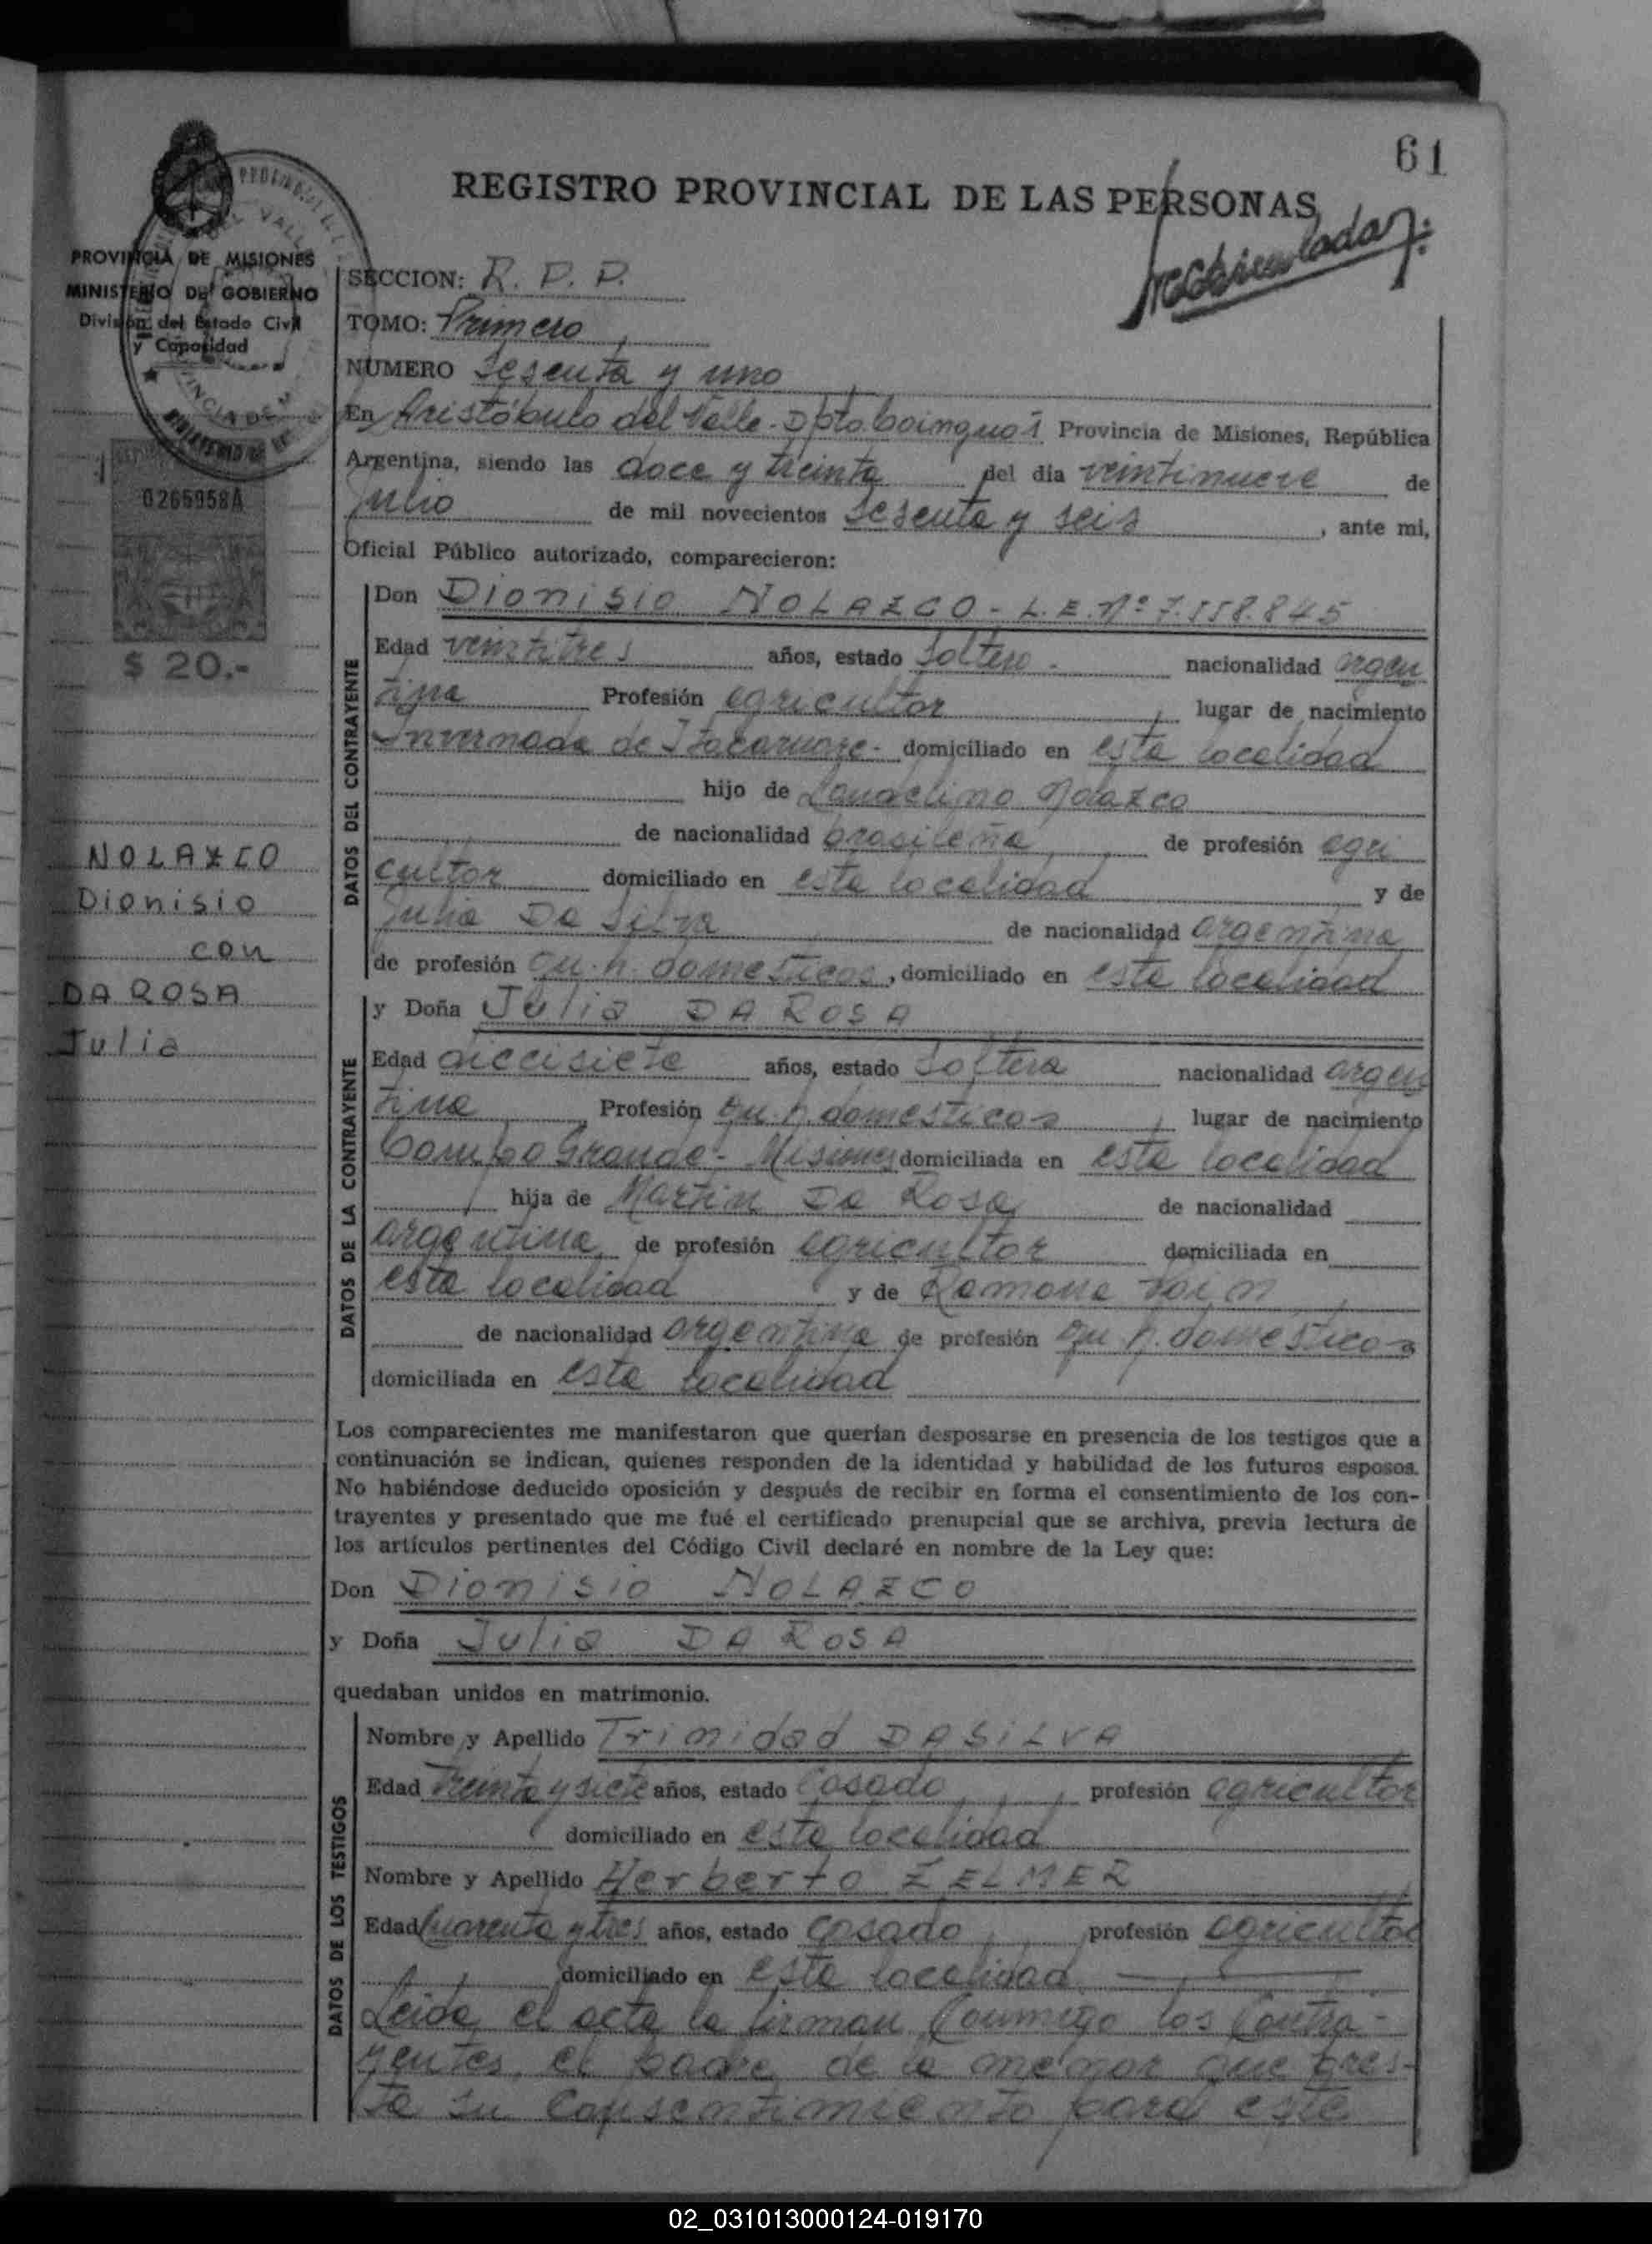 61
REGISTRO PROVINCIAL DE LAS PERSONAS
PROVINCIA DE MISIONES
MINISTERIO DE GOBIERNO
División del Estado Civil
y Capacidad
0265958A
$ 20.-
NOLAZCO
Dionisio
con
DA ROSA
Julia
SECCION: R. P. P.
TOMO: Primero
NUMERO Sesenta y uno
En Aristóbulo del Valle - Dpto. Cainguás Provincia de Misiones, República
Argentina, siendo las doce y treinta del día veintinueve de
Julio de mil novecientos Sesenta y seis, ante mi,
Oficial Público autorizado, comparecieron:
DATOS DEL CONTRAYENTE
Don Dionisio NOLAZCO - L.E. Nº 7.558.845
Edad veintitres años, estado Soltero - nacionalidad argen
tina Profesión agricultor lugar de nacimiento
Invernada de Itacaruare - domiciliado en esta localidad
hijo de Landelino Nolazco
de nacionalidad brasileña de profesión agri
cultor domiciliado en esta localidad y de
Julia Da Silva de nacionalidad argentina
de profesión qu. h. domesticos, domiciliado en esta localidad
DATOS DE LA CONTRAYENTE
y Doña Julia DA ROSA
Edad diecisiete años, estado Soltera nacionalidad argen
tina Profesión qu. h. domesticos lugar de nacimiento
Campo Grande - Misiones domiciliada en esta localidad
hija de Martin Da Rosa de nacionalidad
argentina de profesión agricultor domiciliada en
esta localidad y de Ramona
de nacionalidad argentina de profesión qu. h. domésticos
domiciliada en esta localidad
Los comparecientes me manifestaron que querían desposarse en presencia de los testigos que a
continuación se indican, quienes responden de la identidad y habilidad de los futuros esposos.
No habiéndose deducido oposición y después de recibir en forma el consentimiento de los con-
trayentes y presentado que me fué el certificado prenupcial que se archiva, previa lectura de
los artículos pertinentes del Código Civil declaré en nombre de la Ley que:
Don Dionisio NOLAZCO
y Doña Julia DA ROSA
quedaban unidos en matrimonio.
DATOS DE LOS TESTIGOS
Nombre y Apellido Trinidad DA SILVA
Edad Treinta y siete años, estado Casado profesión agricultor
domiciliado en esta localidad
Nombre y Apellido Herberto ZELMER
Edad Cuarenta y tres años, estado Casado profesión agricultor
domiciliado en esta localidad
Leida el acta la firman Conmigo los Contra-
yentes, el padre de la menor que pres-
ta su Consentimiento para este
02_031013000124-019170